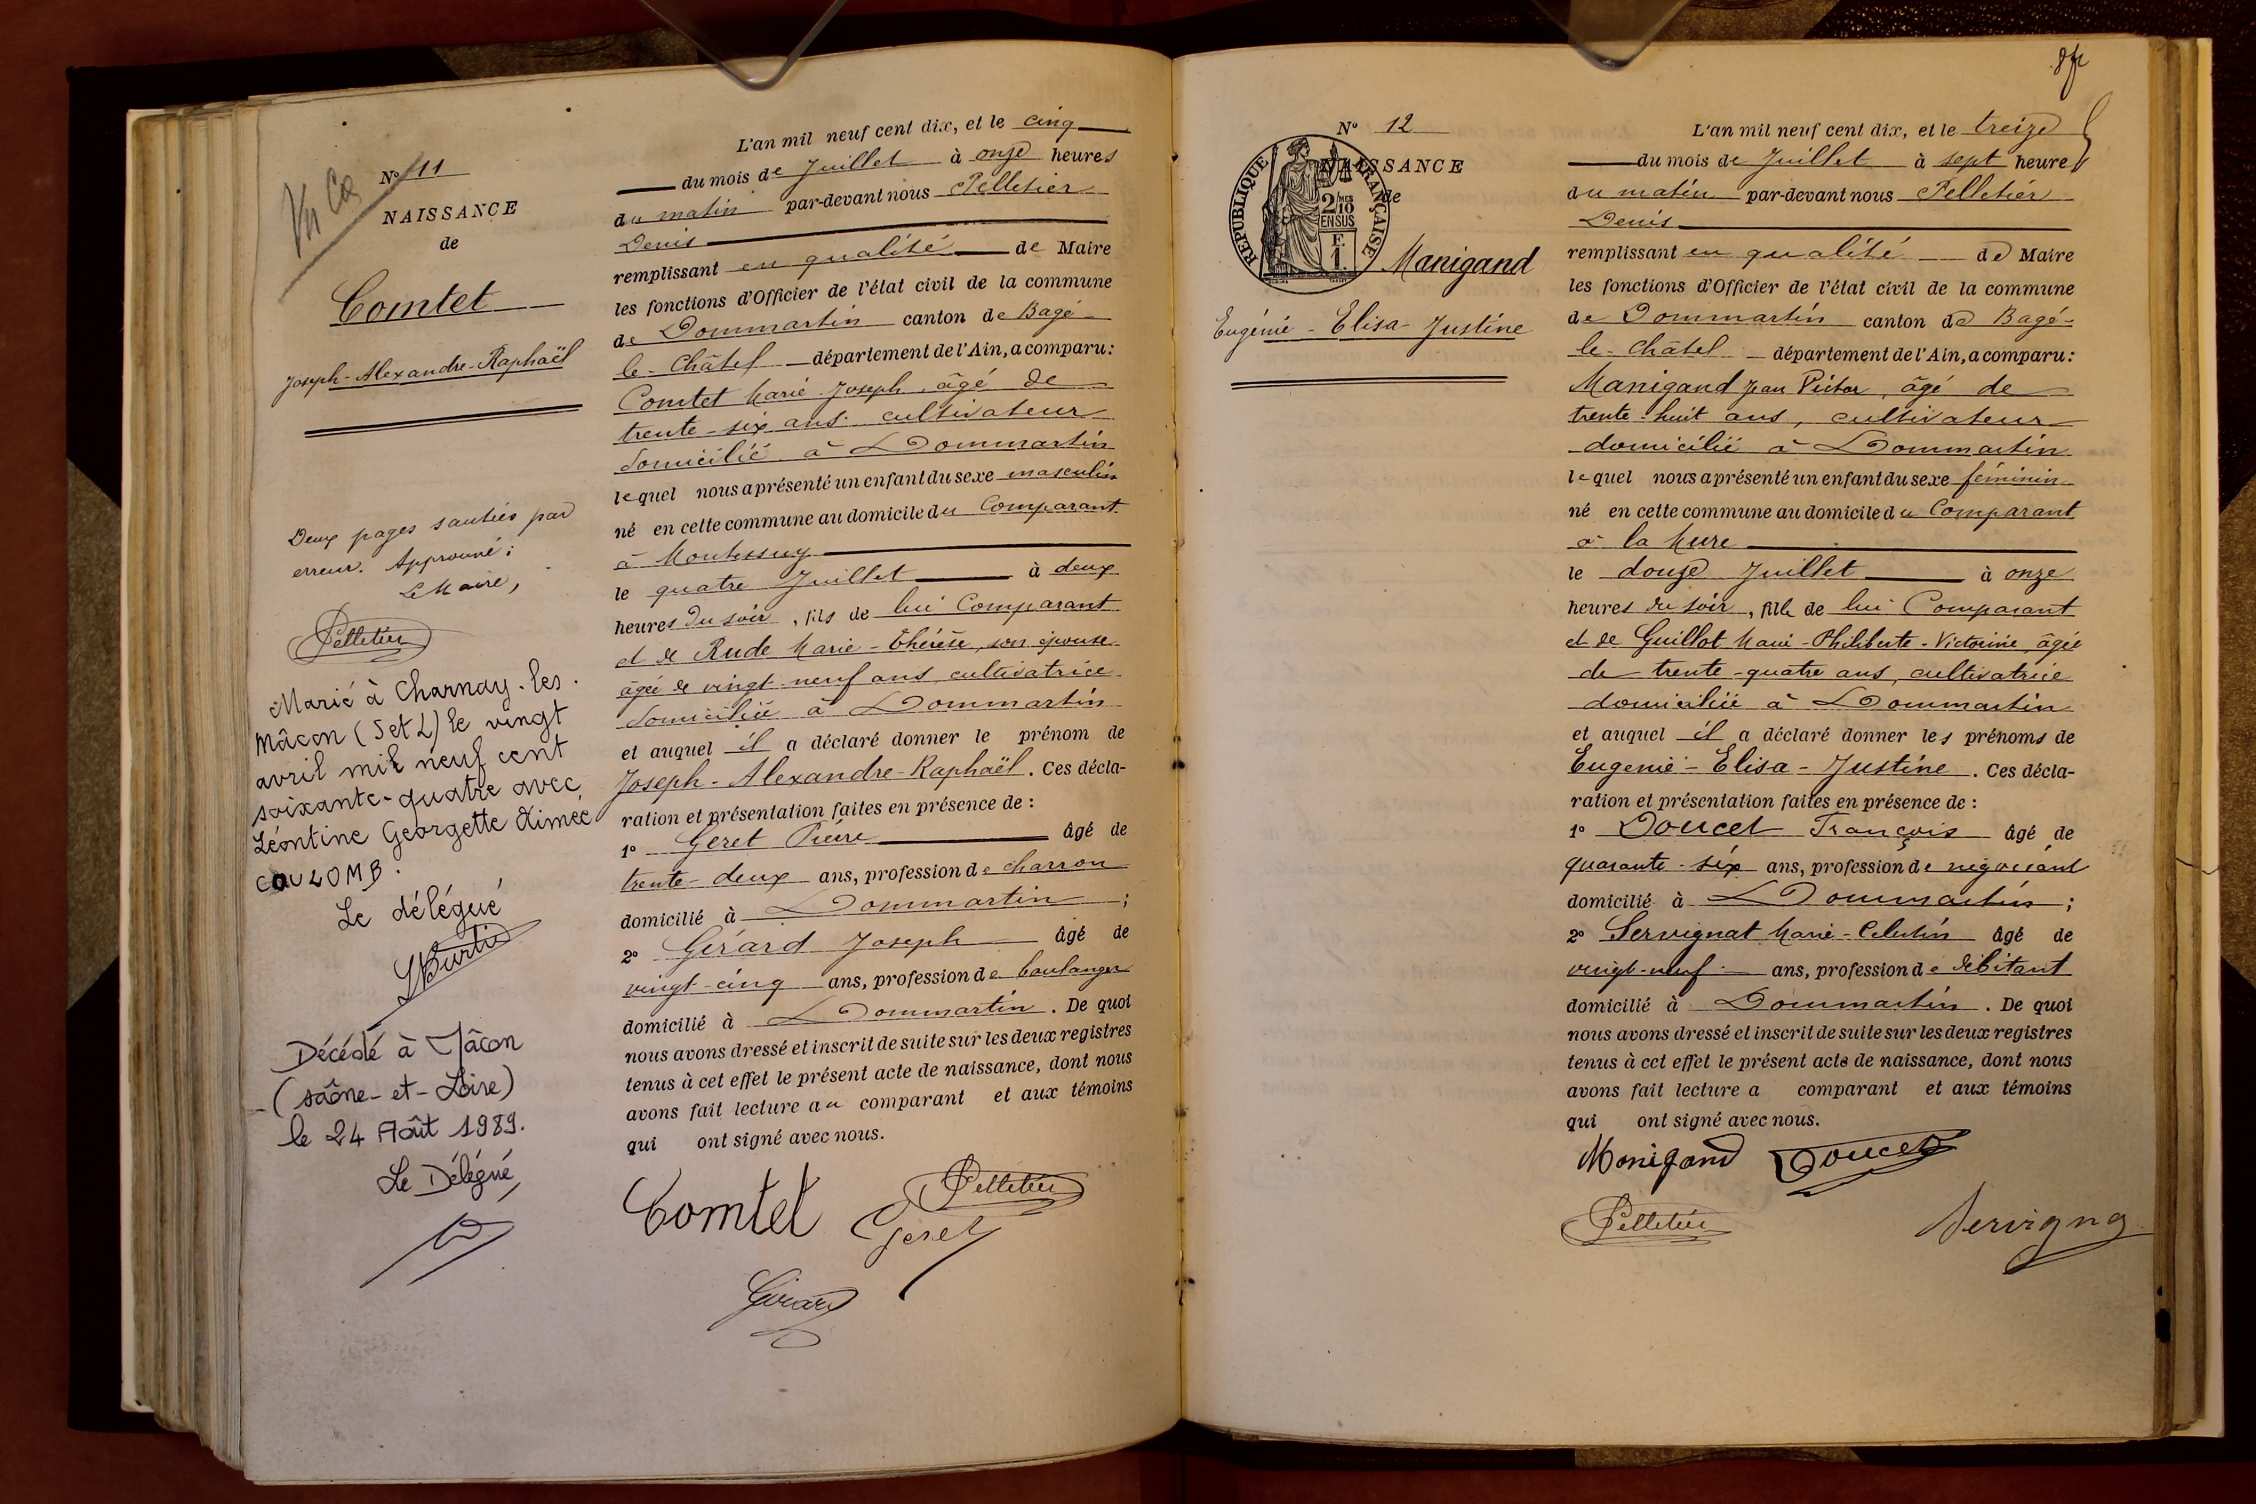 N° 11
Vu
NAISSANCE
de
Comtet
Joseph-Alexandre-Raphaël
Deux pages sautées par
erreur. Approuvé:
Le Maire,
Pelletier
Marié à Charnay-les-
Mâcon (S et L) le vingt
avril mil neuf cent
soixante-quatre avec
Léontine Georgette Aimée
COULOMB.
Le délégué
Décédé à Mâcon
(Saône-et-Loire)
le 24 Août 1989.
Le Délégué,
L'an mil neuf cent dix, et le cinq
du mois de Juillet à onze heures
du matin par-devant nous Pelletier
Denis
remplissant en qualité de Maire
les fonctions d'Officier de l'état civil de la commune
de Dommartin canton de Bagé-
le-Châtel département de l'Ain, a comparu:
Comtet Marie Joseph, âgé de
trente-six ans, cultivateur
domicilié à Dommartin
lequel nous a présenté un enfant du sexe masculin
né en cette commune au domicile du Comparant
à Montessuy
le quatre Juillet à deux
heures du soir, fils de lui Comparant
et de Rude Marie-Thérèse, son épouse
âgée de vingt-neuf ans, cultivatrice
domiciliée à Dommartin
et auquel il a déclaré donner le prénom de
Joseph-Alexandre-Raphaël. Ces décla-
ration et présentation faites en présence de:
1° Géret Pierre âgé de
trente-deux ans, profession de charron
domicilié à Dommartin;
2° Gérard Joseph âgé de
vingt-cinq ans, profession de boulanger
domicilié à Dommartin. De quoi
nous avons dressé et inscrit de suite sur les deux registres
tenus à cet effet le présent acte de naissance, dont nous
avons fait lecture au comparant et aux témoins
qui ont signé avec nous.
Comtet
Pelletier
Geret
Girard
N° 12
NAISSANCE
de
RÉPUBLIQUE FRANÇAISE
2/10 MES
EN SUS
F.
1.
Manigand
Eugénie-Elisa-Justine
L'an mil neuf cent dix, et le treize
du mois de Juillet à sept heure
du matin par-devant nous Pelletier
Denis
remplissant en qualité de Maire
les fonctions d'Officier de l'état civil de la commune
de Dommartin canton de Bagé-
le-Châtel département de l'Ain, a comparu:
Manigand Jean Victor, âgé de
trente-huit ans, cultivateur
domicilié à Dommartin
lequel nous a présenté un enfant du sexe féminin
né en cette commune au domicile du Comparant
à la Mure
le douze Juillet à onze
heures du soir, fille de lui Comparant
et de Guillot Marie-Philiberte-Victorine, âgée
de trente-quatre ans, cultivatrice
domiciliée à Dommartin
et auquel il a déclaré donner les prénoms de
Eugenie-Elisa-Justine. Ces décla-
ration et présentation faites en présence de:
1° Doucet François âgé de
quarante-six ans, profession de négociant
domicilié à Dommartin;
2° Servignat Marie-Célestin âgé de
vingt-neuf ans, profession de débitant
domicilié à Dommartin. De quoi
nous avons dressé et inscrit de suite sur les deux registres
tenus à cet effet le présent acte de naissance, dont nous
avons fait lecture a comparant et aux témoins
qui ont signé avec nous.
Manigand
Doucet
Pelletier
Servigna